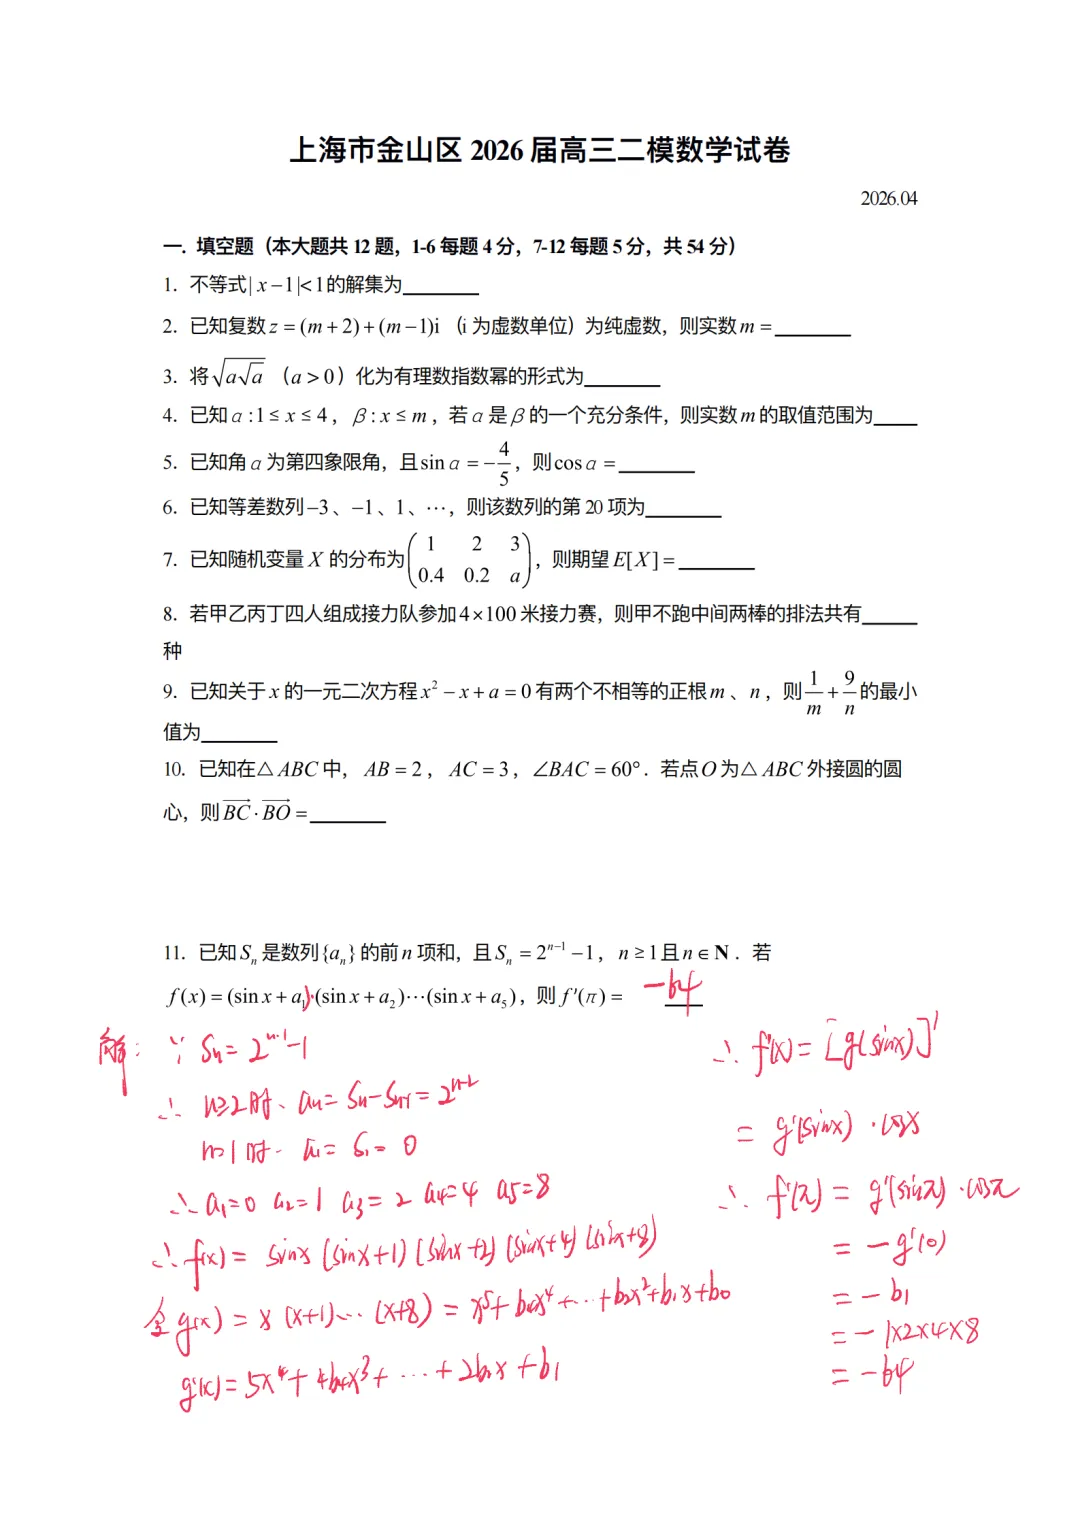 上海市金山区 2026 届高三二模数学试卷
2026.04
一. 填空题（本大题共 12 题，1-6 每题 4 分，7-12 每题 5 分，共 54 分）
1. 不等式|x−1|<1的解集为
2. 已知复数z=(m+2)+(m−1)i（i 为虚数单位）为纯虚数，则实数m=
3. 将√(a√a)（a>0）化为有理数指数幂的形式为
4. 已知α:1≤x≤4，β:x≤m，若α是β的一个充分条件，则实数m的取值范围为
5. 已知角α为第四象限角，且sinα=−4/5，则cosα=
6. 已知等差数列−3、−1、1、⋯，则该数列的第 20 项为
7. 已知随机变量 X 的分布为(1 2 3 / 0.4 0.2 a)，则期望 E[X]=
8. 若甲乙丙丁四人组成接力队参加4×100米接力赛，则甲不跑中间两棒的排法共有
种
9. 已知关于x的一元二次方程x²−x+a=0有两个不相等的正根m、n，则1/m+9/n的最小
值为
10. 已知在△ABC中，AB=2，AC=3，∠BAC=60°．若点O为△ABC外接圆的圆
心，则BC·BO=
11. 已知Sₙ是数列{aₙ}的前n项和，且Sₙ=2ⁿ⁻¹−1，n≥1且n∈N．若
f(x)=(sinx+a₁)·(sinx+a₂)⋯(sinx+a₅)，则f'(π)= −64
解：∵ Sn=2ⁿ⁻¹−1
∴ n≥2时、an=Sn−Sn-1=2ⁿ⁻²
n=1时、a₁=S₁=0
∴a₁=0 a₂=1 a₃=2 a₄=4 a₅=8
∴f(x)=sinx(sinx+1)(sinx+2)(sinx+4)(sinx+8)
令g(x)=x(x+1)⋯(x+8)=x⁵+b₄x⁴+⋯+b₂x²+b₁x+b₀
g'(x)=5x⁴+4b₄x³+⋯+2b₂x+b₁
∴ f'(x)=[g(sinx)]'
=g'(sinx)·cosx
∴ f'(π)=g'(sinπ)·cosπ
=−g'(0)
=−b₁
=−1×2×4×8
=−64